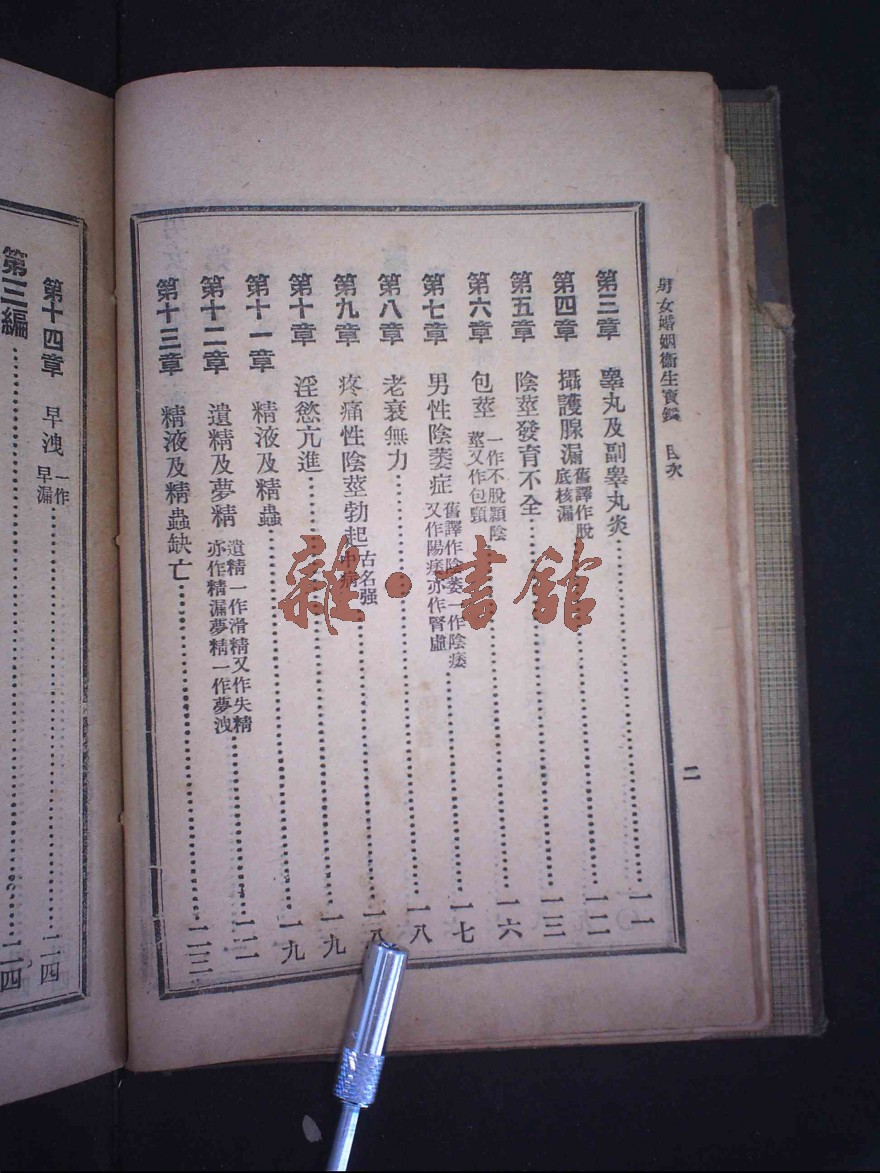 男女婚姻衞生寶鑑 目次 二
第三章 睾丸及副睾丸炎……一一
第四章 攝護腺漏 舊譯作脫底核漏……一二
第五章 陰莖發育不全……一三
第六章 包莖 一作不脫顆陰莖又作包頸……一六
第七章 男性陰萎症 舊譯作陰萎一作陰痿又作陽痿亦作腎虛……一七
第八章 老衰無力……一八
第九章 疼痛性陰莖勃起 古名强中病……一八
第十章 淫慾亢進……一九
第十一章 精液及精蟲……一九
第十二章 遺精及夢精 遺精一作滑精又作失精亦作精漏夢精一作夢洩……
第十三章 精液及精蟲缺亡……二三
第十四章 早洩 一作早漏……二四
第三編……二四
雜·書館